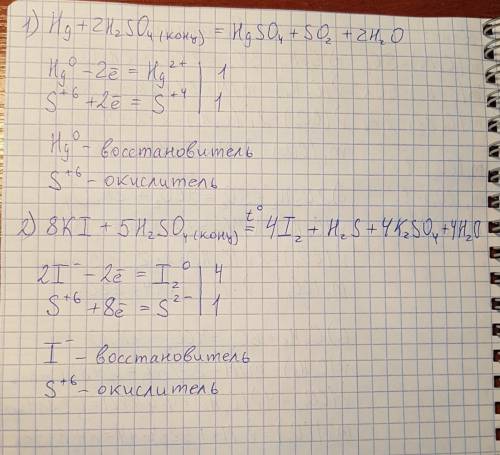 1) Hg + 2H₂SO₄ (конц) = HgSO₄ + SO₂ + 2H₂O
Hg⁰ - 2ē = Hg²⁺ | 1
S⁺⁶ + 2ē = S⁺⁴ | 1
Hg⁰ - восстановитель
S⁺⁶ - окислитель
2) 8KI + 5H₂SO₄ (конц) =^t° 4I₂ + H₂S + 4K₂SO₄ + 4H₂O
2I⁻ - 2ē = I₂⁰ | 4
S⁺⁶ + 8ē = S²⁻ | 1
I⁻ - восстановитель
S⁺⁶ - окислитель